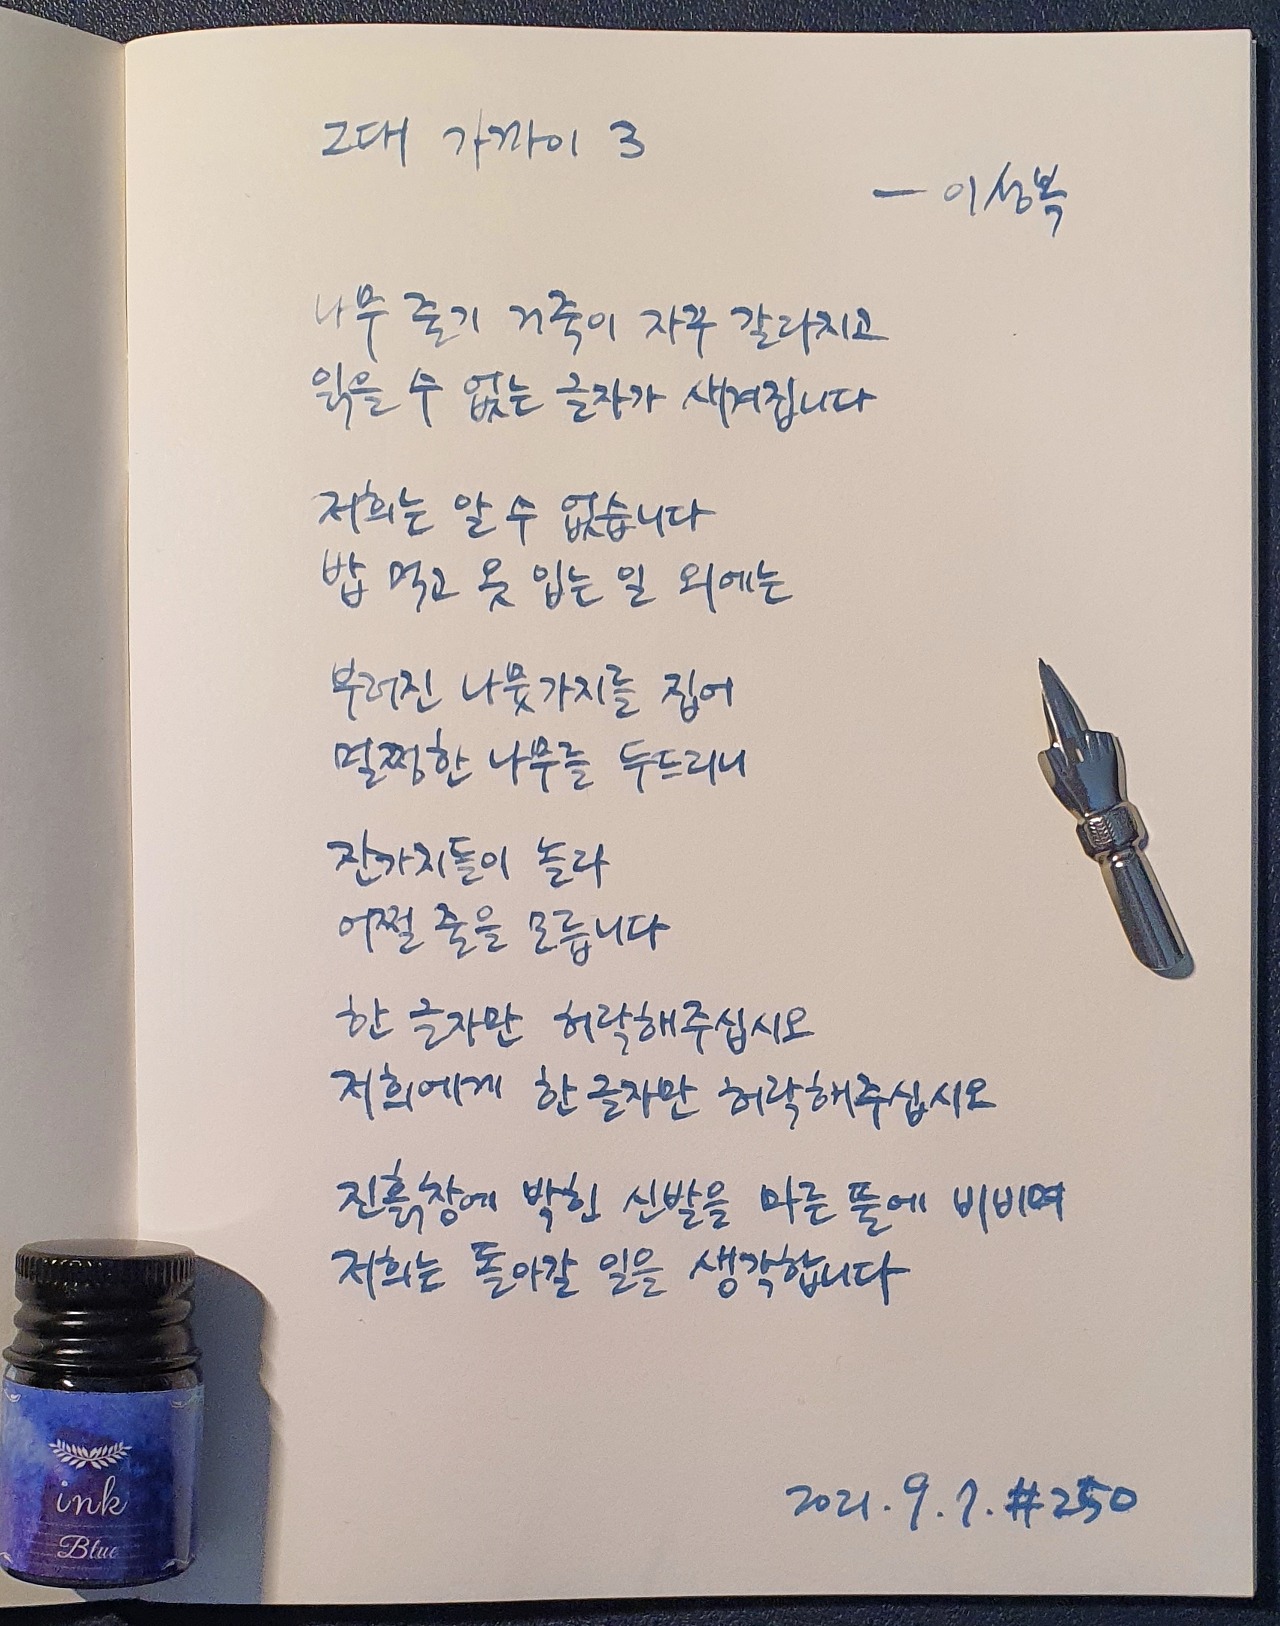 그대 가까이 3
— 이성복
나무 줄기 거죽이 자꾸 갈라지고
읽을 수 없는 글자가 새겨집니다
저희는 알 수 없습니다
밥 먹고 옷 입는 일 외에는
부러진 나뭇가지를 집어
멀쩡한 나무를 두드리니
잔가지들이 놀라
어쩔 줄을 모릅니다
한 글자만 허락해주십시오
저희에게 한 글자만 허락해주십시오
진흙창에 박힌 신발을 마른 풀에 비비며
저희는 돌아갈 일을 생각합니다
2021. 9. 7. #250
ink
Blue